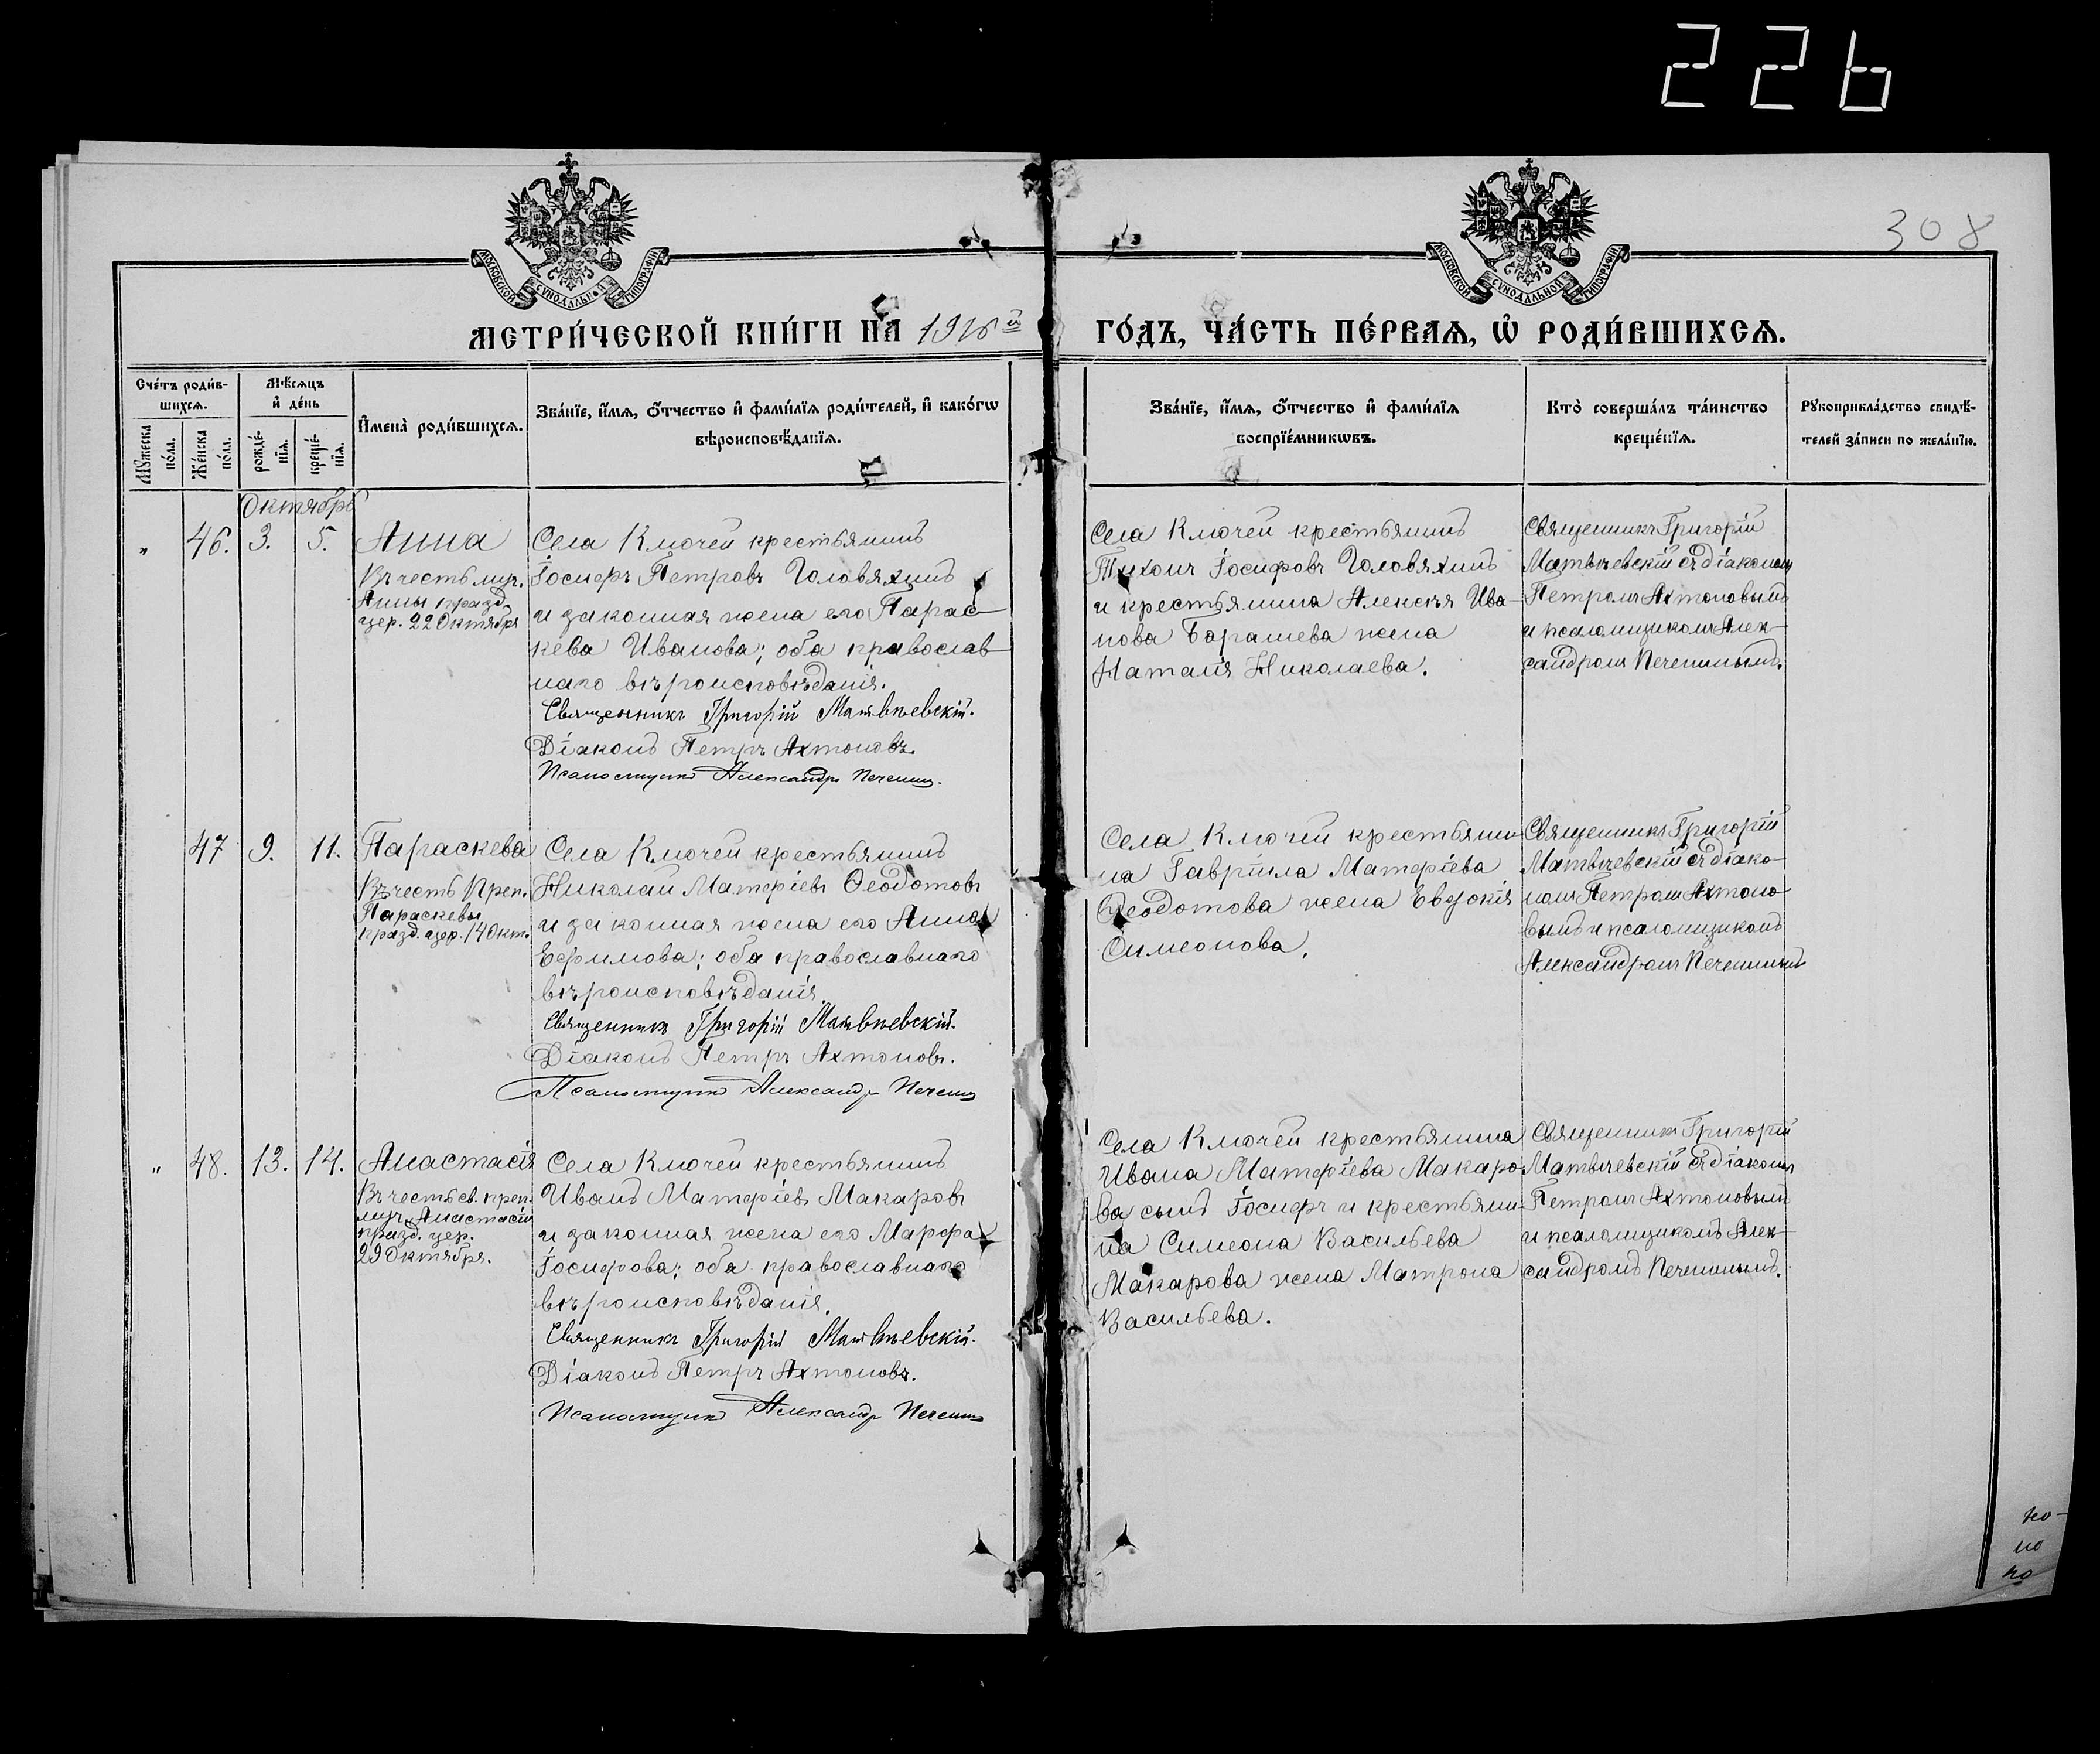 226
308
МОСКОВСКОЙ СѴНОДАЛЬНОЙ ТИПОГРАФІИ
МОСКОВСКОЙ СѴНОДАЛЬНОЙ ТИПОГРАФІИ
МЕТРИ́ЧЕСКОЙ КНИ́ГИ НА 1916й ГО́ДЪ, ЧА́СТЬ ПЕ́РВАЯ, Ѡ҆ РОДИ́ВШИХСЯ.
Сче́тъ роди́в-
шихся.
Мѣ́сяцъ
и҆ де́нь
Мꙋ́жеска по́ла.
Же́нска по́ла.
рожде́-нїя.
креще́-нїя.
И҆мена̀ роди́вшихся.
Зва́нїе, и҆́мя, ѻ҆́тчество и҆ фами́лїя роди́телей, и҆ како́гѡ
вѣроисповѣ́данїя.
Зва́нїе, и҆́мя, ѻ҆́тчество и҆ фами́лїя
воспрїе́мникѡвъ.
Кто̀ соверша́лъ та́инство
креще́нїя.
Рꙋкоприкла́дство свидѣ́-
телей за́писи по жела́нїю.
Октябрь
" 46. 3. 5.
Анна
Въ честь муч.
Анны празд.
цер. 22 Октября
Села Ключей крестьянинъ
Іосифъ Петровъ Головяхинъ
и законная жена его Парас-
кева Иванова; оба православ-
наго вѣроисповѣданія.
Священникъ Григорій Матвѣевскій.
Діаконъ Петръ Ахтоновъ.
Псаломщикъ Александръ Печенин.
Села Ключей крестьянинъ
Тихонъ Іосифовъ Головяхинъ
и крестьянина Алексѣя Ива-
нова Барашева жена
Наталія Николаева.
Священникъ Григорій
Матвѣевскій съ діакономъ
Петромъ Ахтоновымъ
и псаломщикомъ Алек-
сандромъ Печенинымъ.
47 9. 11.
Параскева
Въ честь Преп.
Параскевы
празд. цер. 14 Окт.
Села Ключей крестьянинъ
Николай Матѳріевъ Ѳеодотовъ
и законная жена его Анна
Ефимова; оба православнаго
вѣроисповѣданія.
Священникъ Григорій Матвѣевскій.
Діаконъ Петръ Ахтоновъ.
Псаломщикъ Александръ Печенин
Села Ключей крестьяни-
на Гавріила Матѳріева
Ѳеодотова жена Евдокія
Симеонова.
Священникъ Григорій
Матвѣевскій съ діако-
номъ Петромъ Ахтоно-
вымъ и псаломщикомъ
Александромъ Печенинымъ
" 48. 13. 14.
Анастасія
Въ честь св. преп.
муч. Анастасіи
празд. цер.
29 Октября.
Села Ключей крестьянинъ
Иванъ Матѳріевъ Макаровъ
и законная жена его Марфа
Іосифова; оба православнаго
вѣроисповѣданія.
Священникъ Григорій Матвѣевскій.
Діаконъ Петръ Ахтоновъ.
Псаломщикъ Александръ Печенин
Села Ключей крестьянина
Ивана Матѳріева Макаро-
ва сынъ Іосифъ и крестьяни-
на Симеона Васильева
Макарова жена Матрона
Васильева.
Священникъ Григорій
Матвѣевскій съ діакономъ
Петромъ Ахтоновымъ
и псаломщикомъ Алек-
сандромъ Печенинымъ.